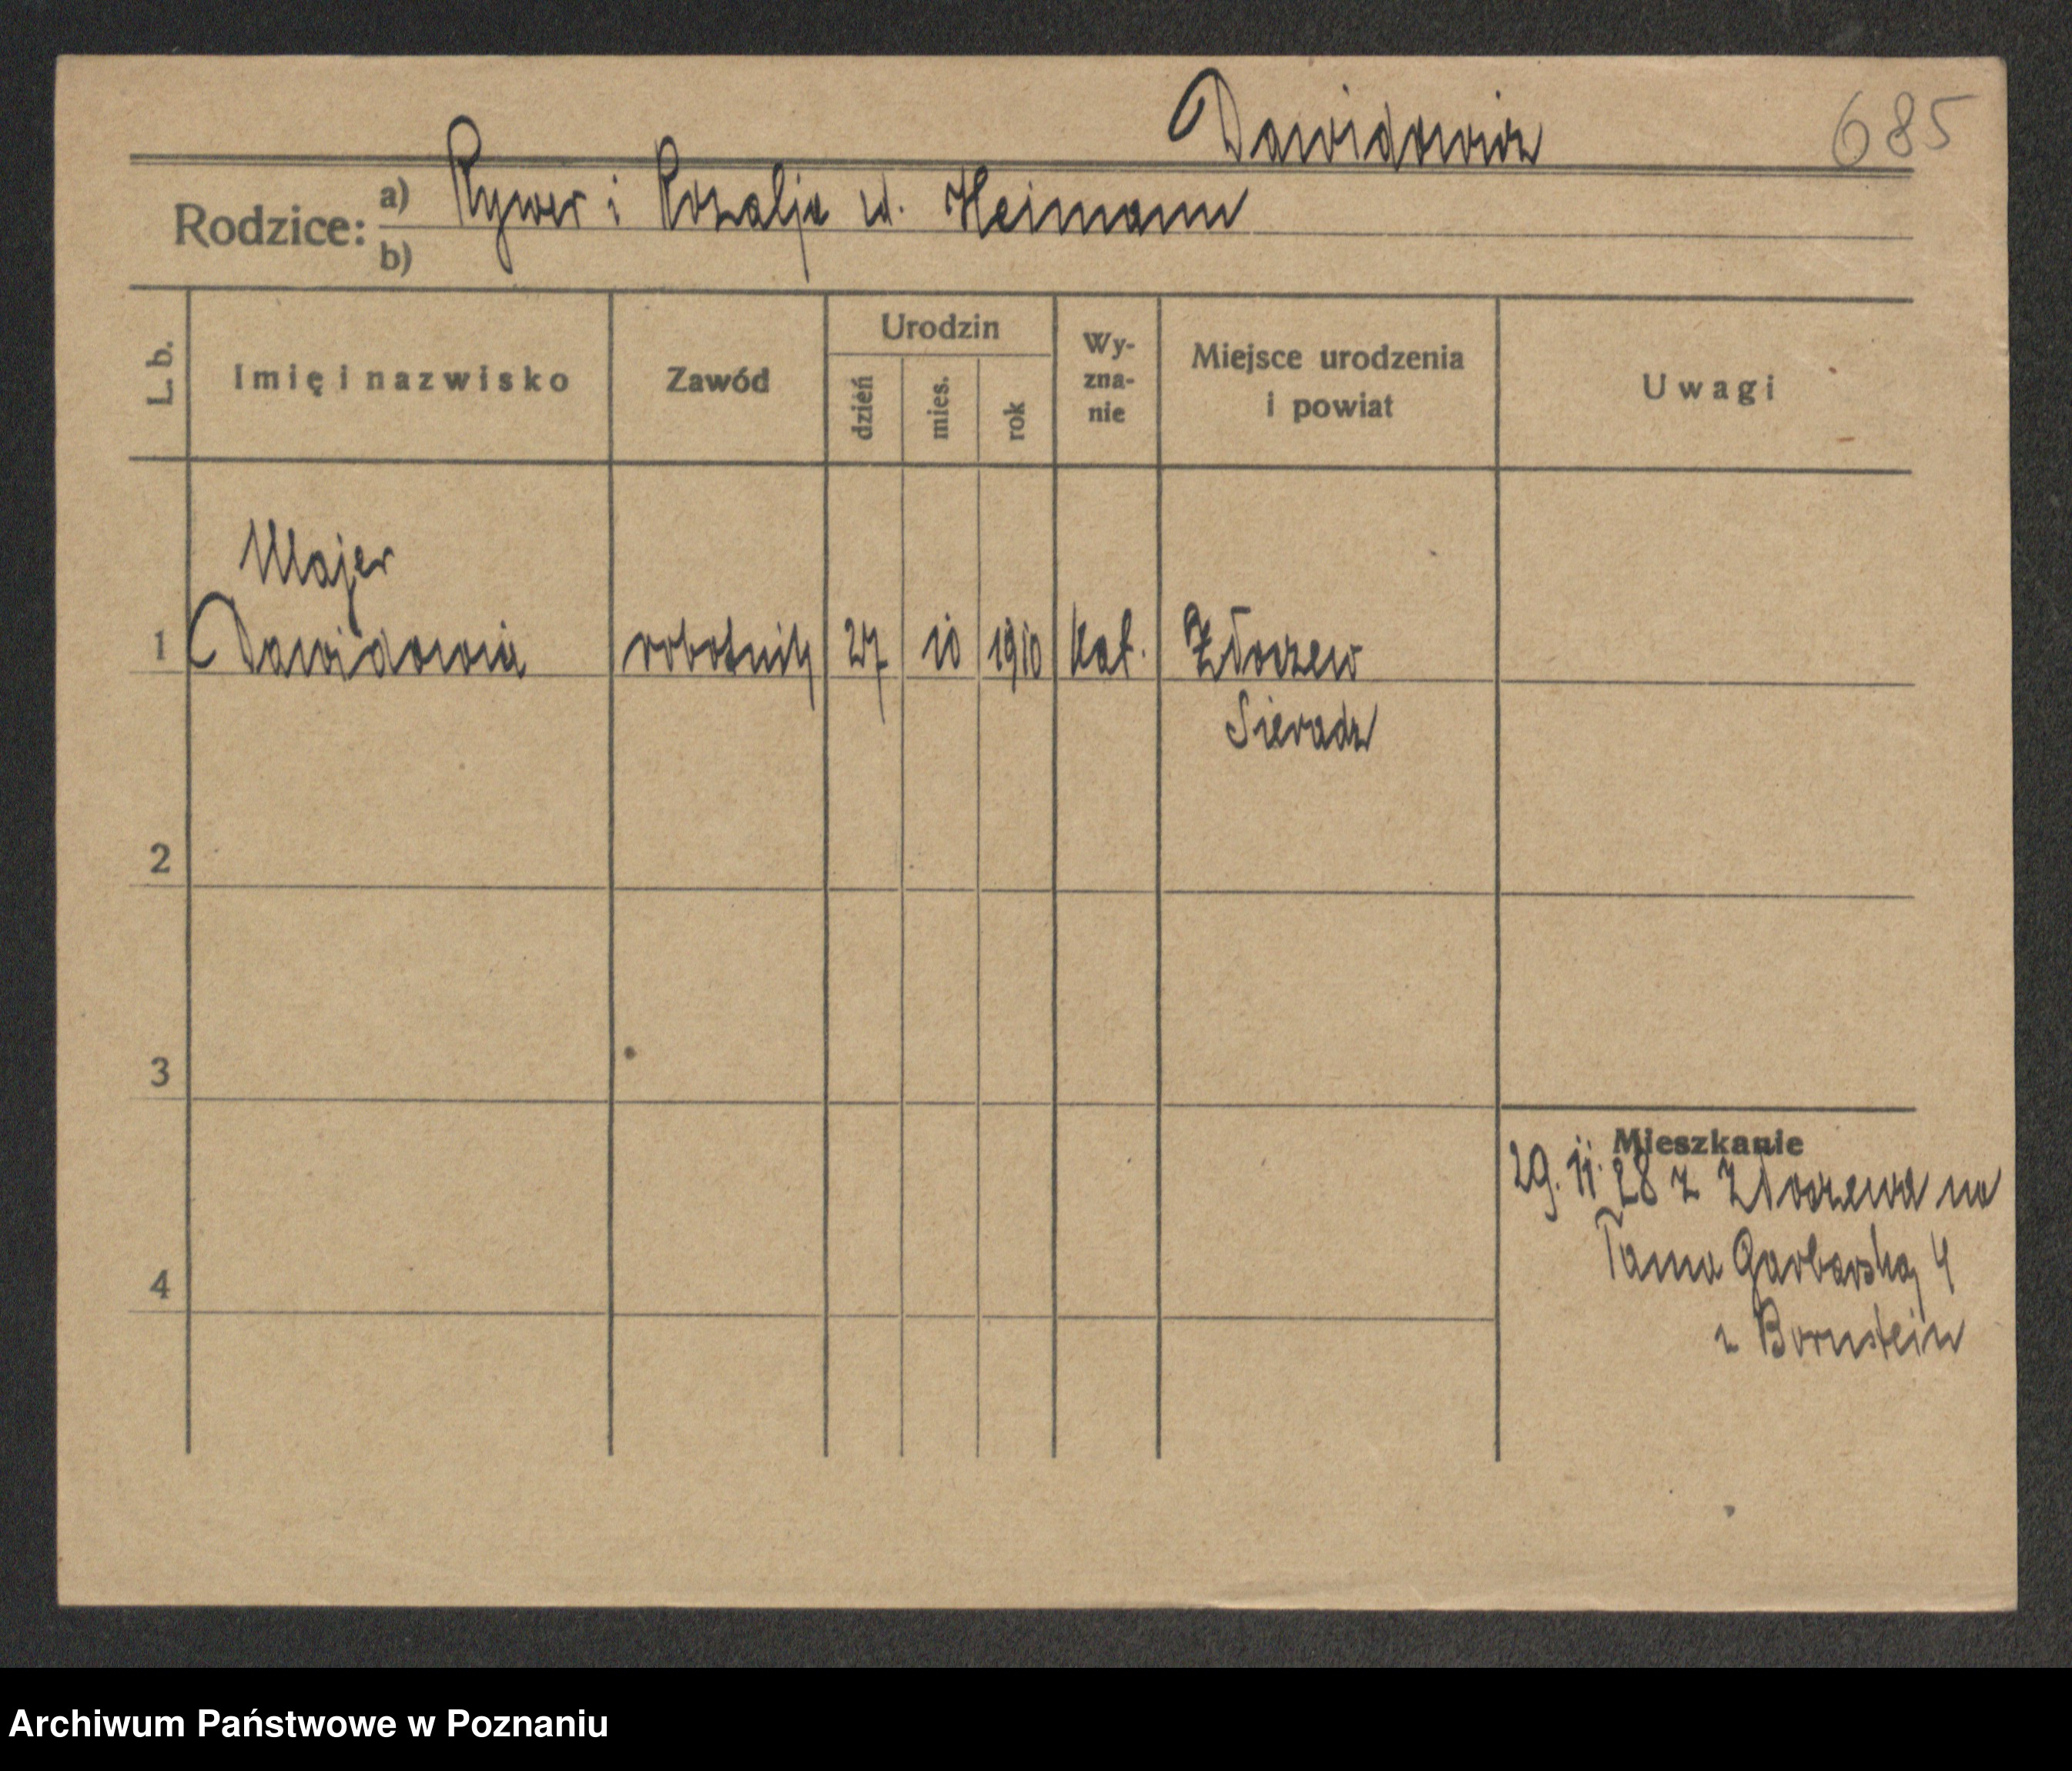 Dawidowicz 685
Rodzice: a) Rywer i Rozalja u. Heimann
b)
L. b. Imię i nazwisko Zawód Urodzin dzień mies. rok Wy-zna-nie Miejsce urodzenia i powiat Uwagi
Majer
1 Dawidowicz robotnik 27 10 1910 kat. Złoczew
Sieradz
2
3
Mieszkanie
29. 11. 28 z Złoczewa na
Tama Garbarska 4
4
z Bornstein
Archiwum Państwowe w Poznaniu